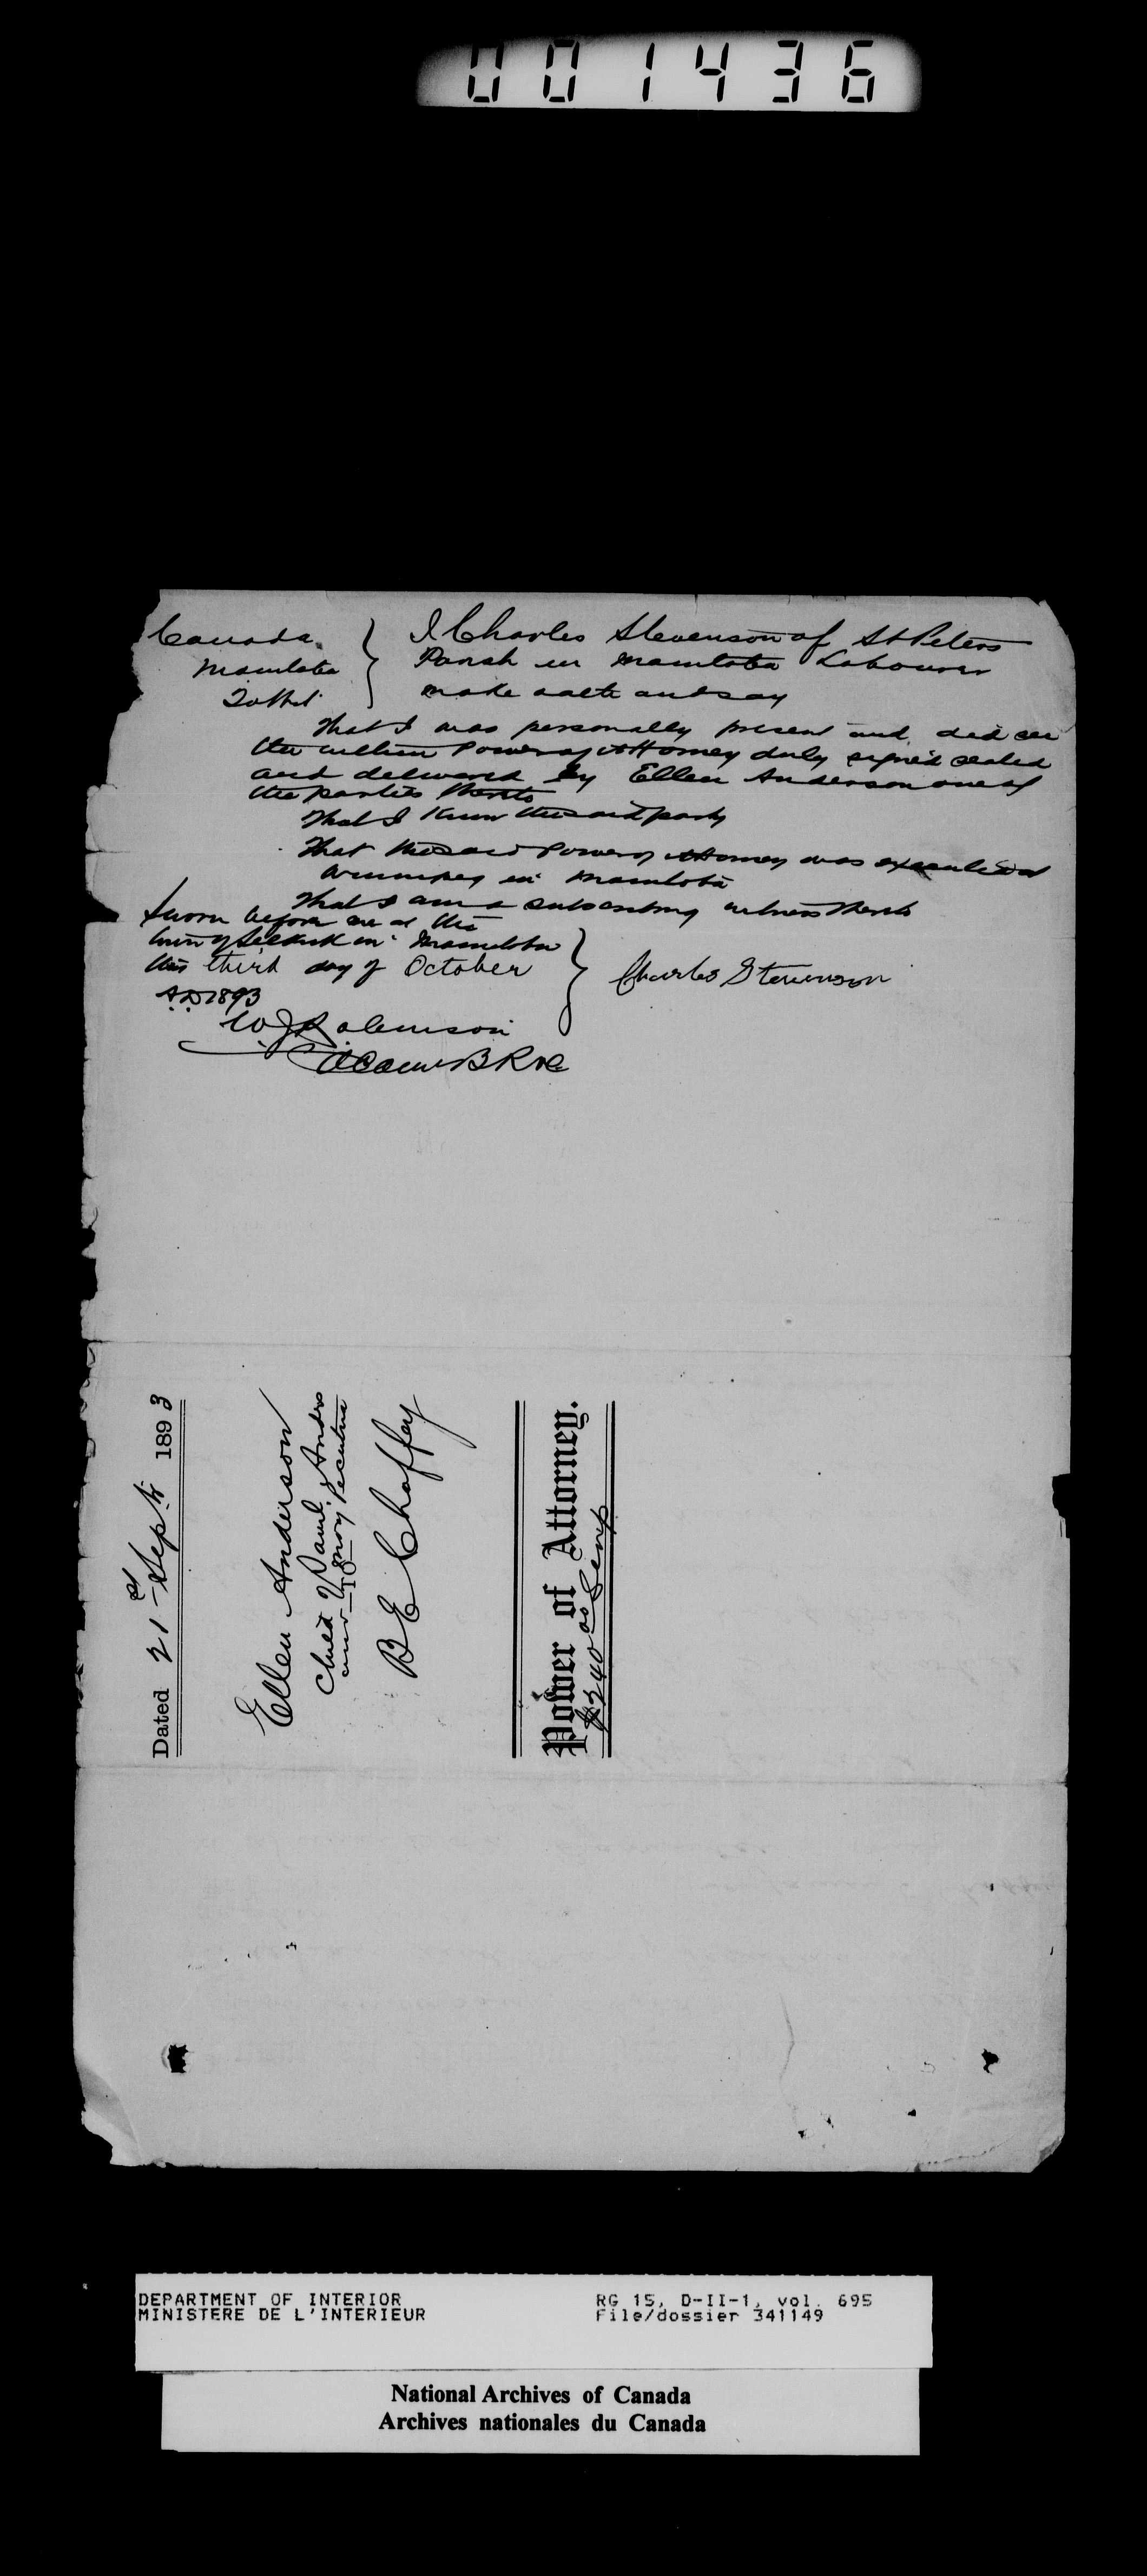 001436
Canada
Manitoba
To Wit
I Charles Stevenson of St Peters
Parish in Manitoba Labourer
make oath and say
That I was personally present and did see
the within Power of Attorney duly signed sealed
and delivered by Ellen Anderson one of
the parties thereto
That I know the said party
That the said Power of Attorney was executed at
Winnipeg in Manitoba
That I am a subscribing witness thereto
Sworn before me at the
town of Selkirk in Manitoba
this third day of October
AD 1893
Charles Stevenson
W J Robinson
A Com B R &c
Dated 21st Sept 1893
Ellen Anderson
Child of Anders
and
TO
B E Chaffey
Power of Attorney.
$240 00 Scrip
DEPARTMENT OF INTERIOR
MINISTERE DE L'INTERIEUR
RG 15, D-II-1, vol. 695
File/dossier 341149
National Archives of Canada
Archives nationales du Canada